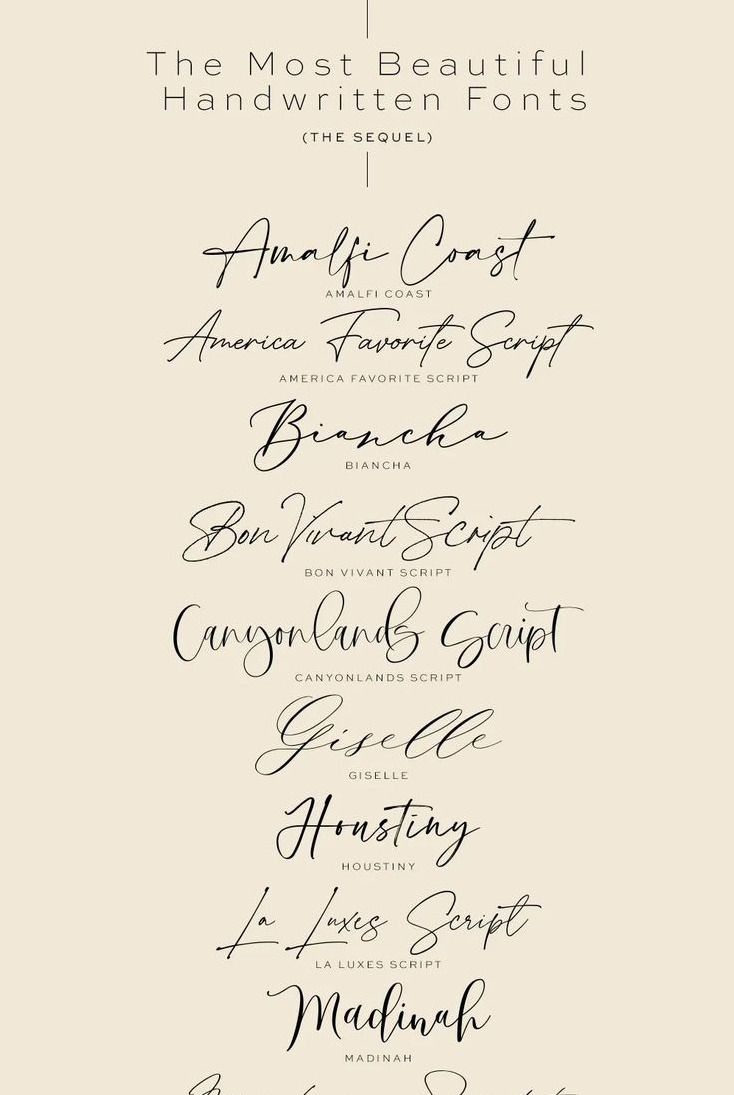 The Most Beautiful
Handwritten Fonts
(THE SEQUEL)
Amalfi Coast
AMALFI COAST
America Favorite Script
AMERICA FAVORITE SCRIPT
Biancha
BIANCHA
Bon Vivant Script
BON VIVANT SCRIPT
Canyonlands Script
CANYONLANDS SCRIPT
Giselle
GISELLE
Houstiny
HOUSTINY
La Luxes Script
LA LUXES SCRIPT
Madinah
MADINAH